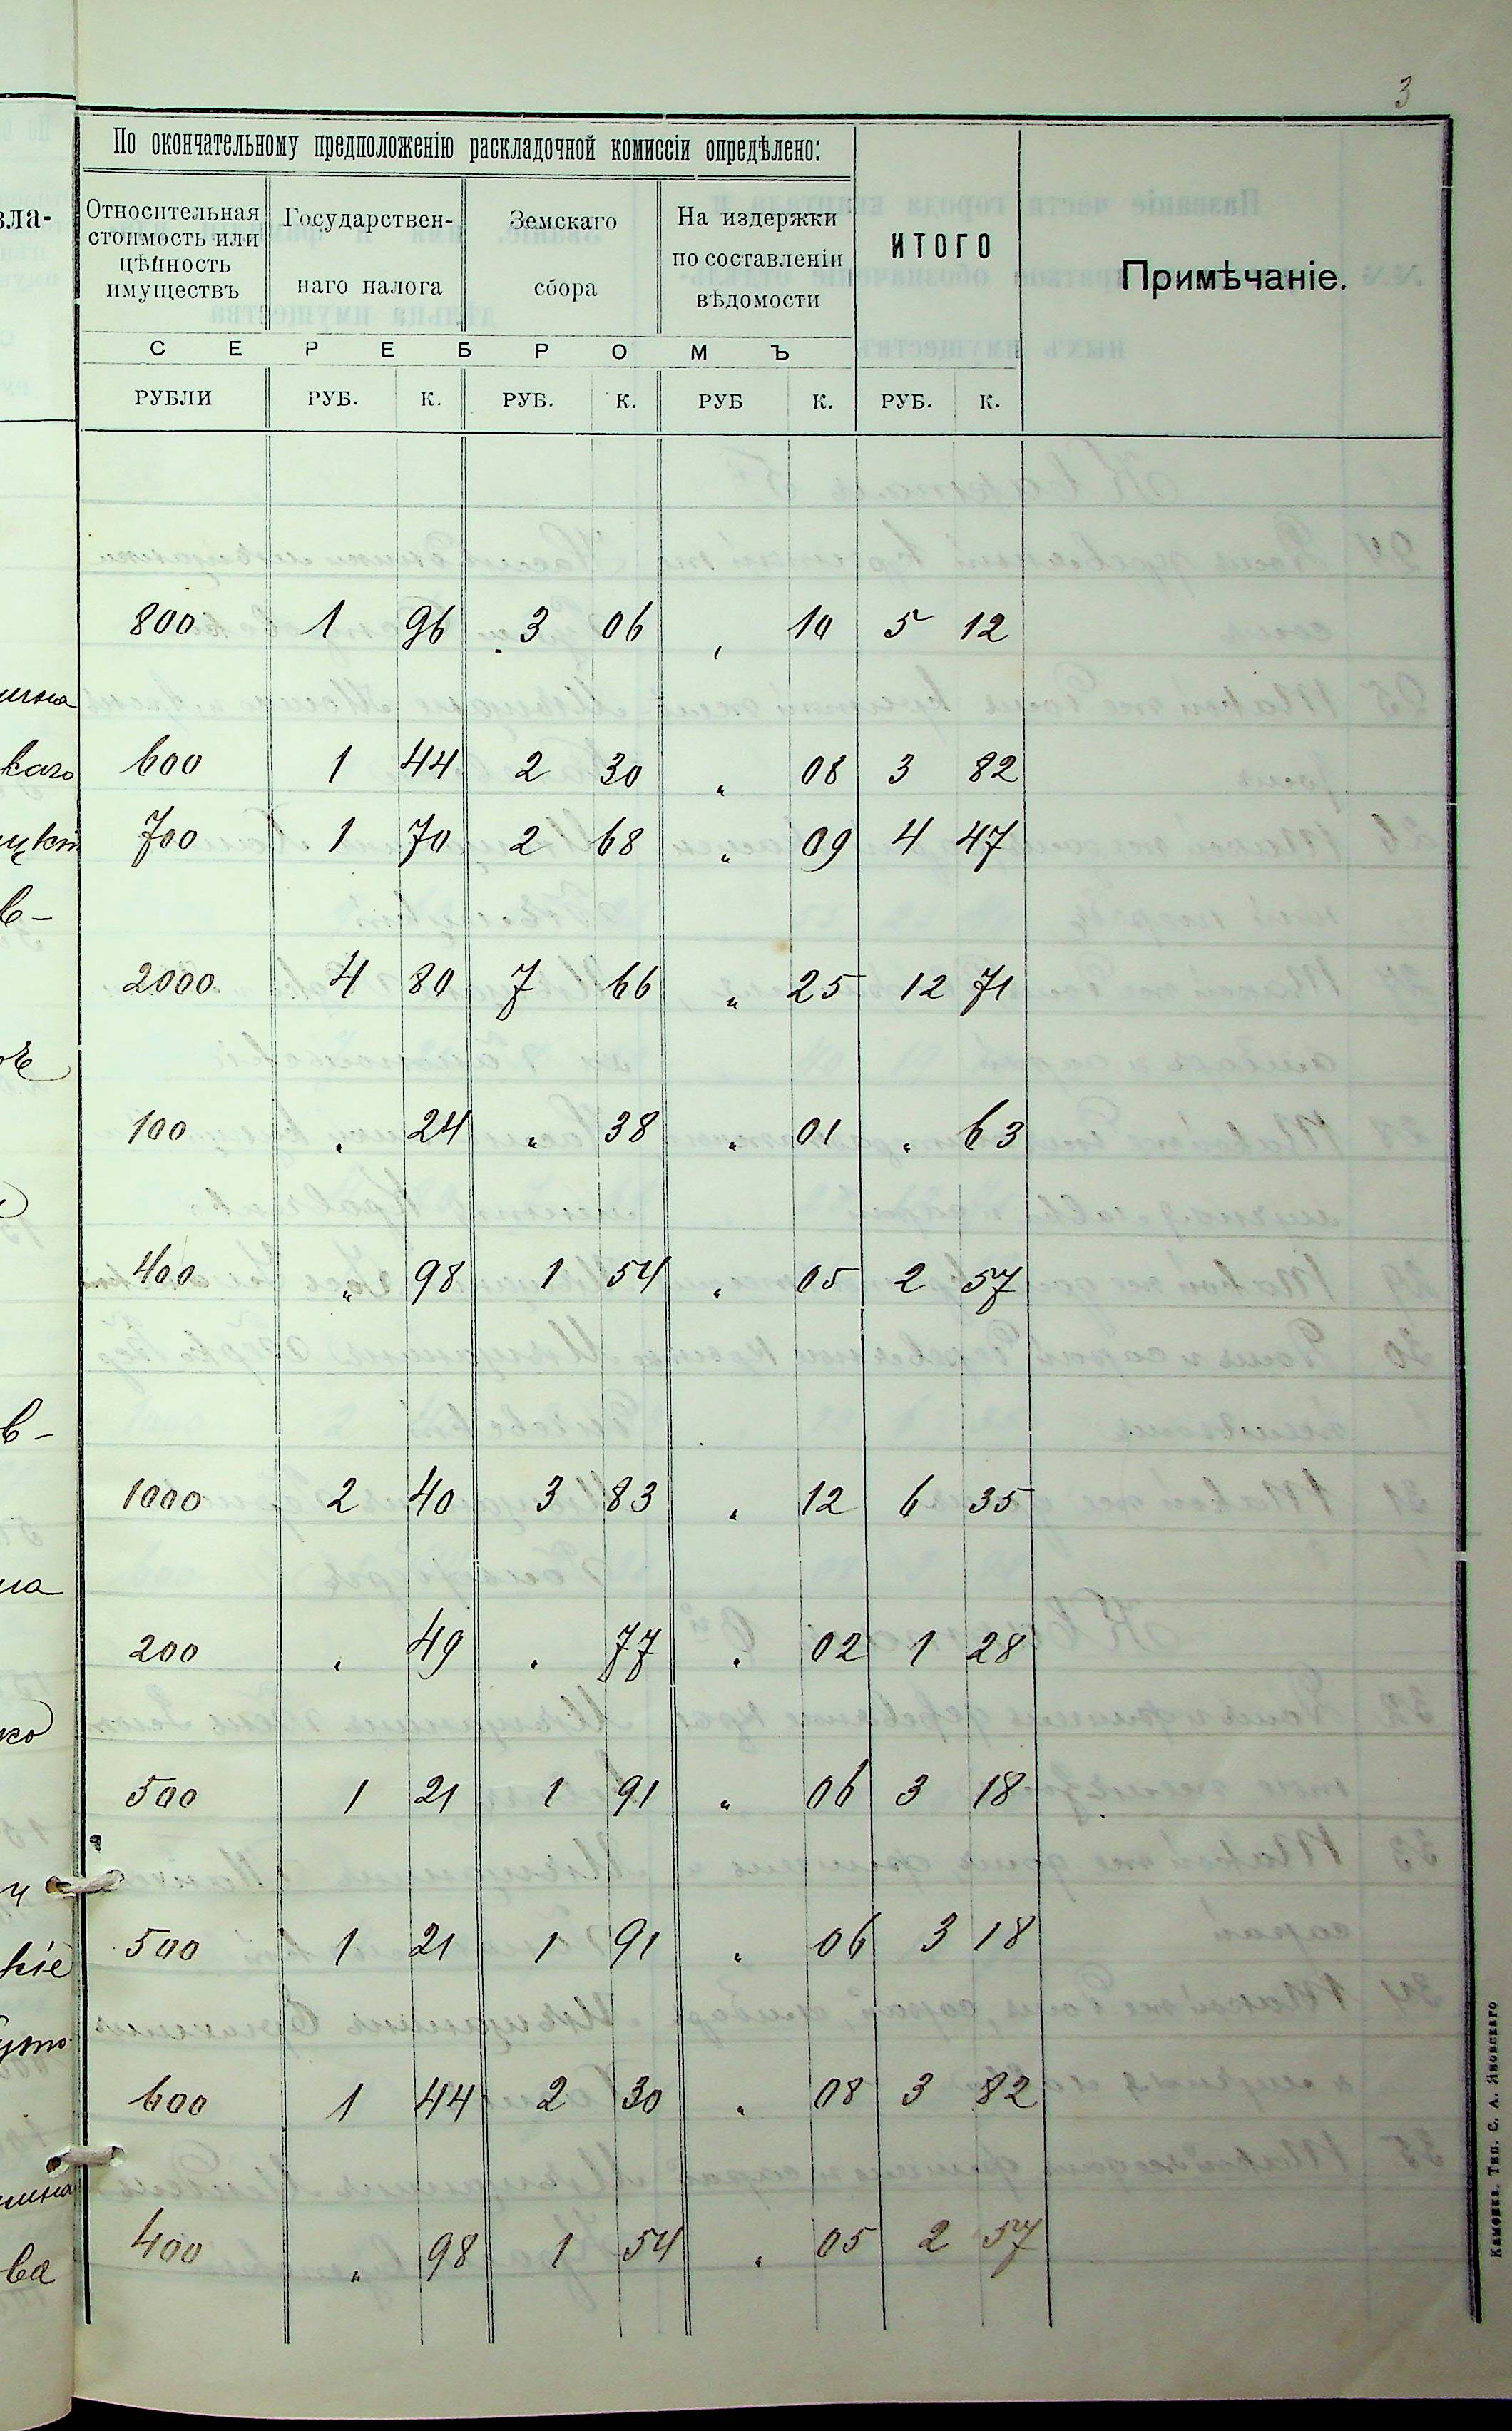 3
По окончательному предположенію раскладочной комиссіи опредѣлено:
Относительная стоимость или цѣнность имуществъ
Государственнаго налога
Земскаго сбора
На издержки по составленіи вѣдомости
ИТОГО
Примѣчаніе.
СЕРЕБРОМЪ
РУБЛИ РУБ. К. РУБ. К. РУБ К. РУБ. К.
800 1 96 3 06 „ 10 5 12
600 1 44 2 30 „ 08 3 82
700 1 70 2 68 „ 09 4 47
2000 4 80 7 66 „ 25 12 71
100 „ 24 „ 38 „ 01 „ 63
400 „ 98 1 54 „ 05 2 57
1000 2 40 3 83 „ 12 6 35
200 „ 49 „ 77 „ 02 1 28
500 1 21 1 91 „ 06 3 18
500 1 21 1 91 „ 06 3 18
600 1 44 2 30 „ 08 3 82
400 „ 98 1 54 „ 05 2 57
Каменка. Тип. С. А. Яновскаго